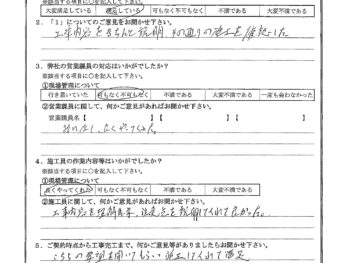 ※該当する項目に○を記入して下さい。
大変満足している 満足している 可もなく不可もなく 不満である 大変不満である
2.「1」についてのご意見をお聞かせ下さい。
工事内容をきちんと説明
3. 弊社の営業職員の対応はいかがでしたか？
※該当する項目に○を記入して下さい。
①現場管理について
行き届いていた 可もなく不可もなく 不満である 大変不満である 一度も会わなかった
②営業職員に関して、何かご意見があればお聞かせ下さい。
営業職員名【 】 営業職員名【 】
4. 施工員の作業内容等はいかがでしたか？
※該当する項目に○を記入して下さい。
①現場管理について
良くやってくれた 可もなく不可もなく 不満である 大変不満である
②施工員に関して、何かご意見があればお聞かせ下さい。
工事内容を
してくれて良かった。
5. ご契約時点から工事完工まで、何かご意見等がありましたらお聞かせ下さい。
こちらの要望を聞いてもらい 施工してくれて満足